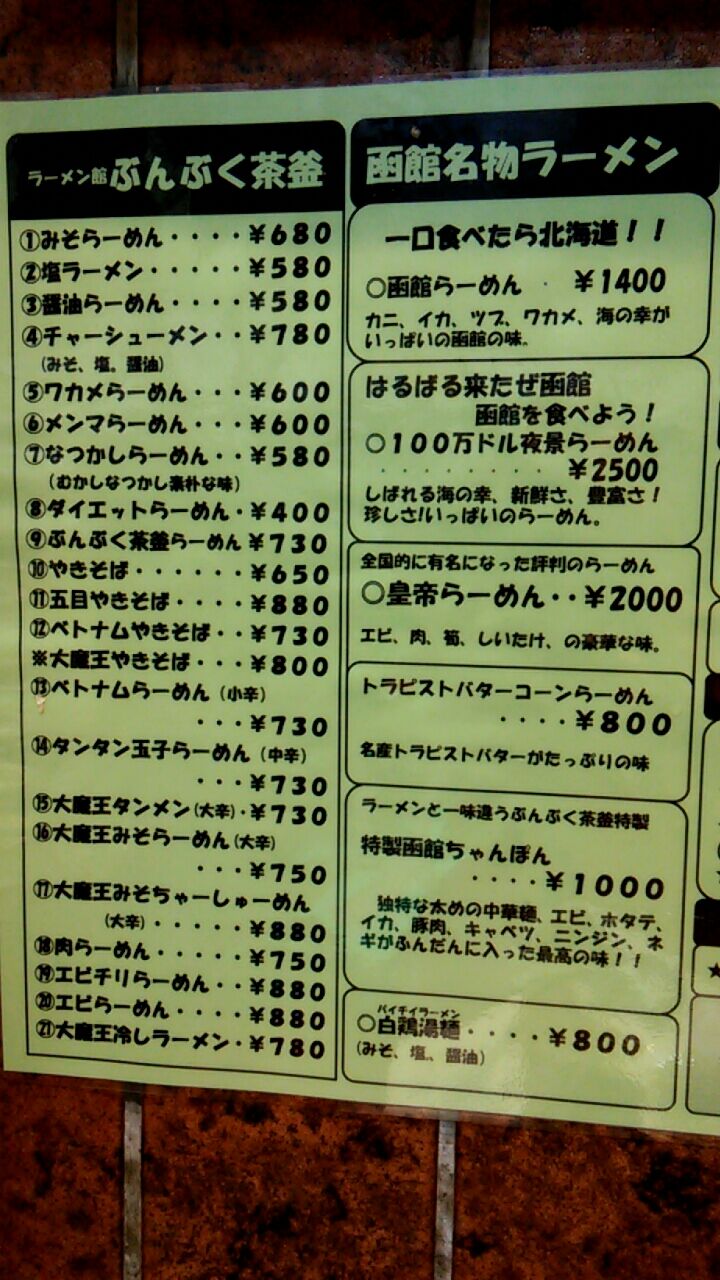 ラーメン館ぶんぶく茶釜
①みそらーめん・・・・¥680
②塩ラーメン・・・・・¥580
③醤油らーめん・・・・¥580
④チャーシューメン・・¥780
(みそ、塩。醤油)
⑤ワカメらーめん・・・¥600
⑥メンマらーめん・・・¥600
⑦なつかしらーめん・・¥580
(むかしなつかし素朴な味)
⑧ダイエットらーめん・¥400
⑨ぶんぶく茶釜らーめん¥730
⑩やきそば・・・・・・¥650
⑪五目やきそば・・・・¥880
⑫ベトナムやきそば・・¥730
※大魔王やきそば・・・¥800
⑬ベトナムらーめん(小辛)
・・・¥730
⑭タンタン玉子らーめん(中辛)
・・・¥730
⑮大魔王タンメン(大辛)・¥730
⑯大魔王みそらーめん(大辛)
・・・¥750
⑰大魔王みそちゃーしゅーめん
(大辛)・・・・・¥880
⑱肉らーめん・・・・・¥750
⑲エビチリらーめん・・¥880
⑳エビらーめん・・・・¥880
㉑大魔王冷しラーメン・¥780
函館名物ラーメン
一口食べたら北海道!!
○函館らーめん ・ ¥1400
カニ、イカ、ツブ、ワカメ、海の幸が
いっぱいの函館の味。
はるばる来たぜ函館
函館を食べよう!
○100万ドル夜景らーめん
・・・・・・・・・ ¥2500
しばれる海の幸、新鮮さ、豊富さ!
珍しさ!いっぱいのらーめん。
全国的に有名になった評判のらーめん
○皇帝らーめん・・¥2000
エビ、肉、筍、しいたけ、の豪華な味。
トラピストバターコーンらーめん
・・・・¥800
名産トラピストバターがたっぷりの味
ラーメンと一味違うぶんぶく茶釜特製
特製函館ちゃんぽん
・・・・¥1000
独特な太めの中華麺、エビ、ホタテ、
イカ、豚肉、キャベツ、ニンジン、ネ
ギがふんだんに入った最高の味!!
パイチイラーメン
○白鶏湯麺・・・・¥800
(みそ、塩、、醤油)
★